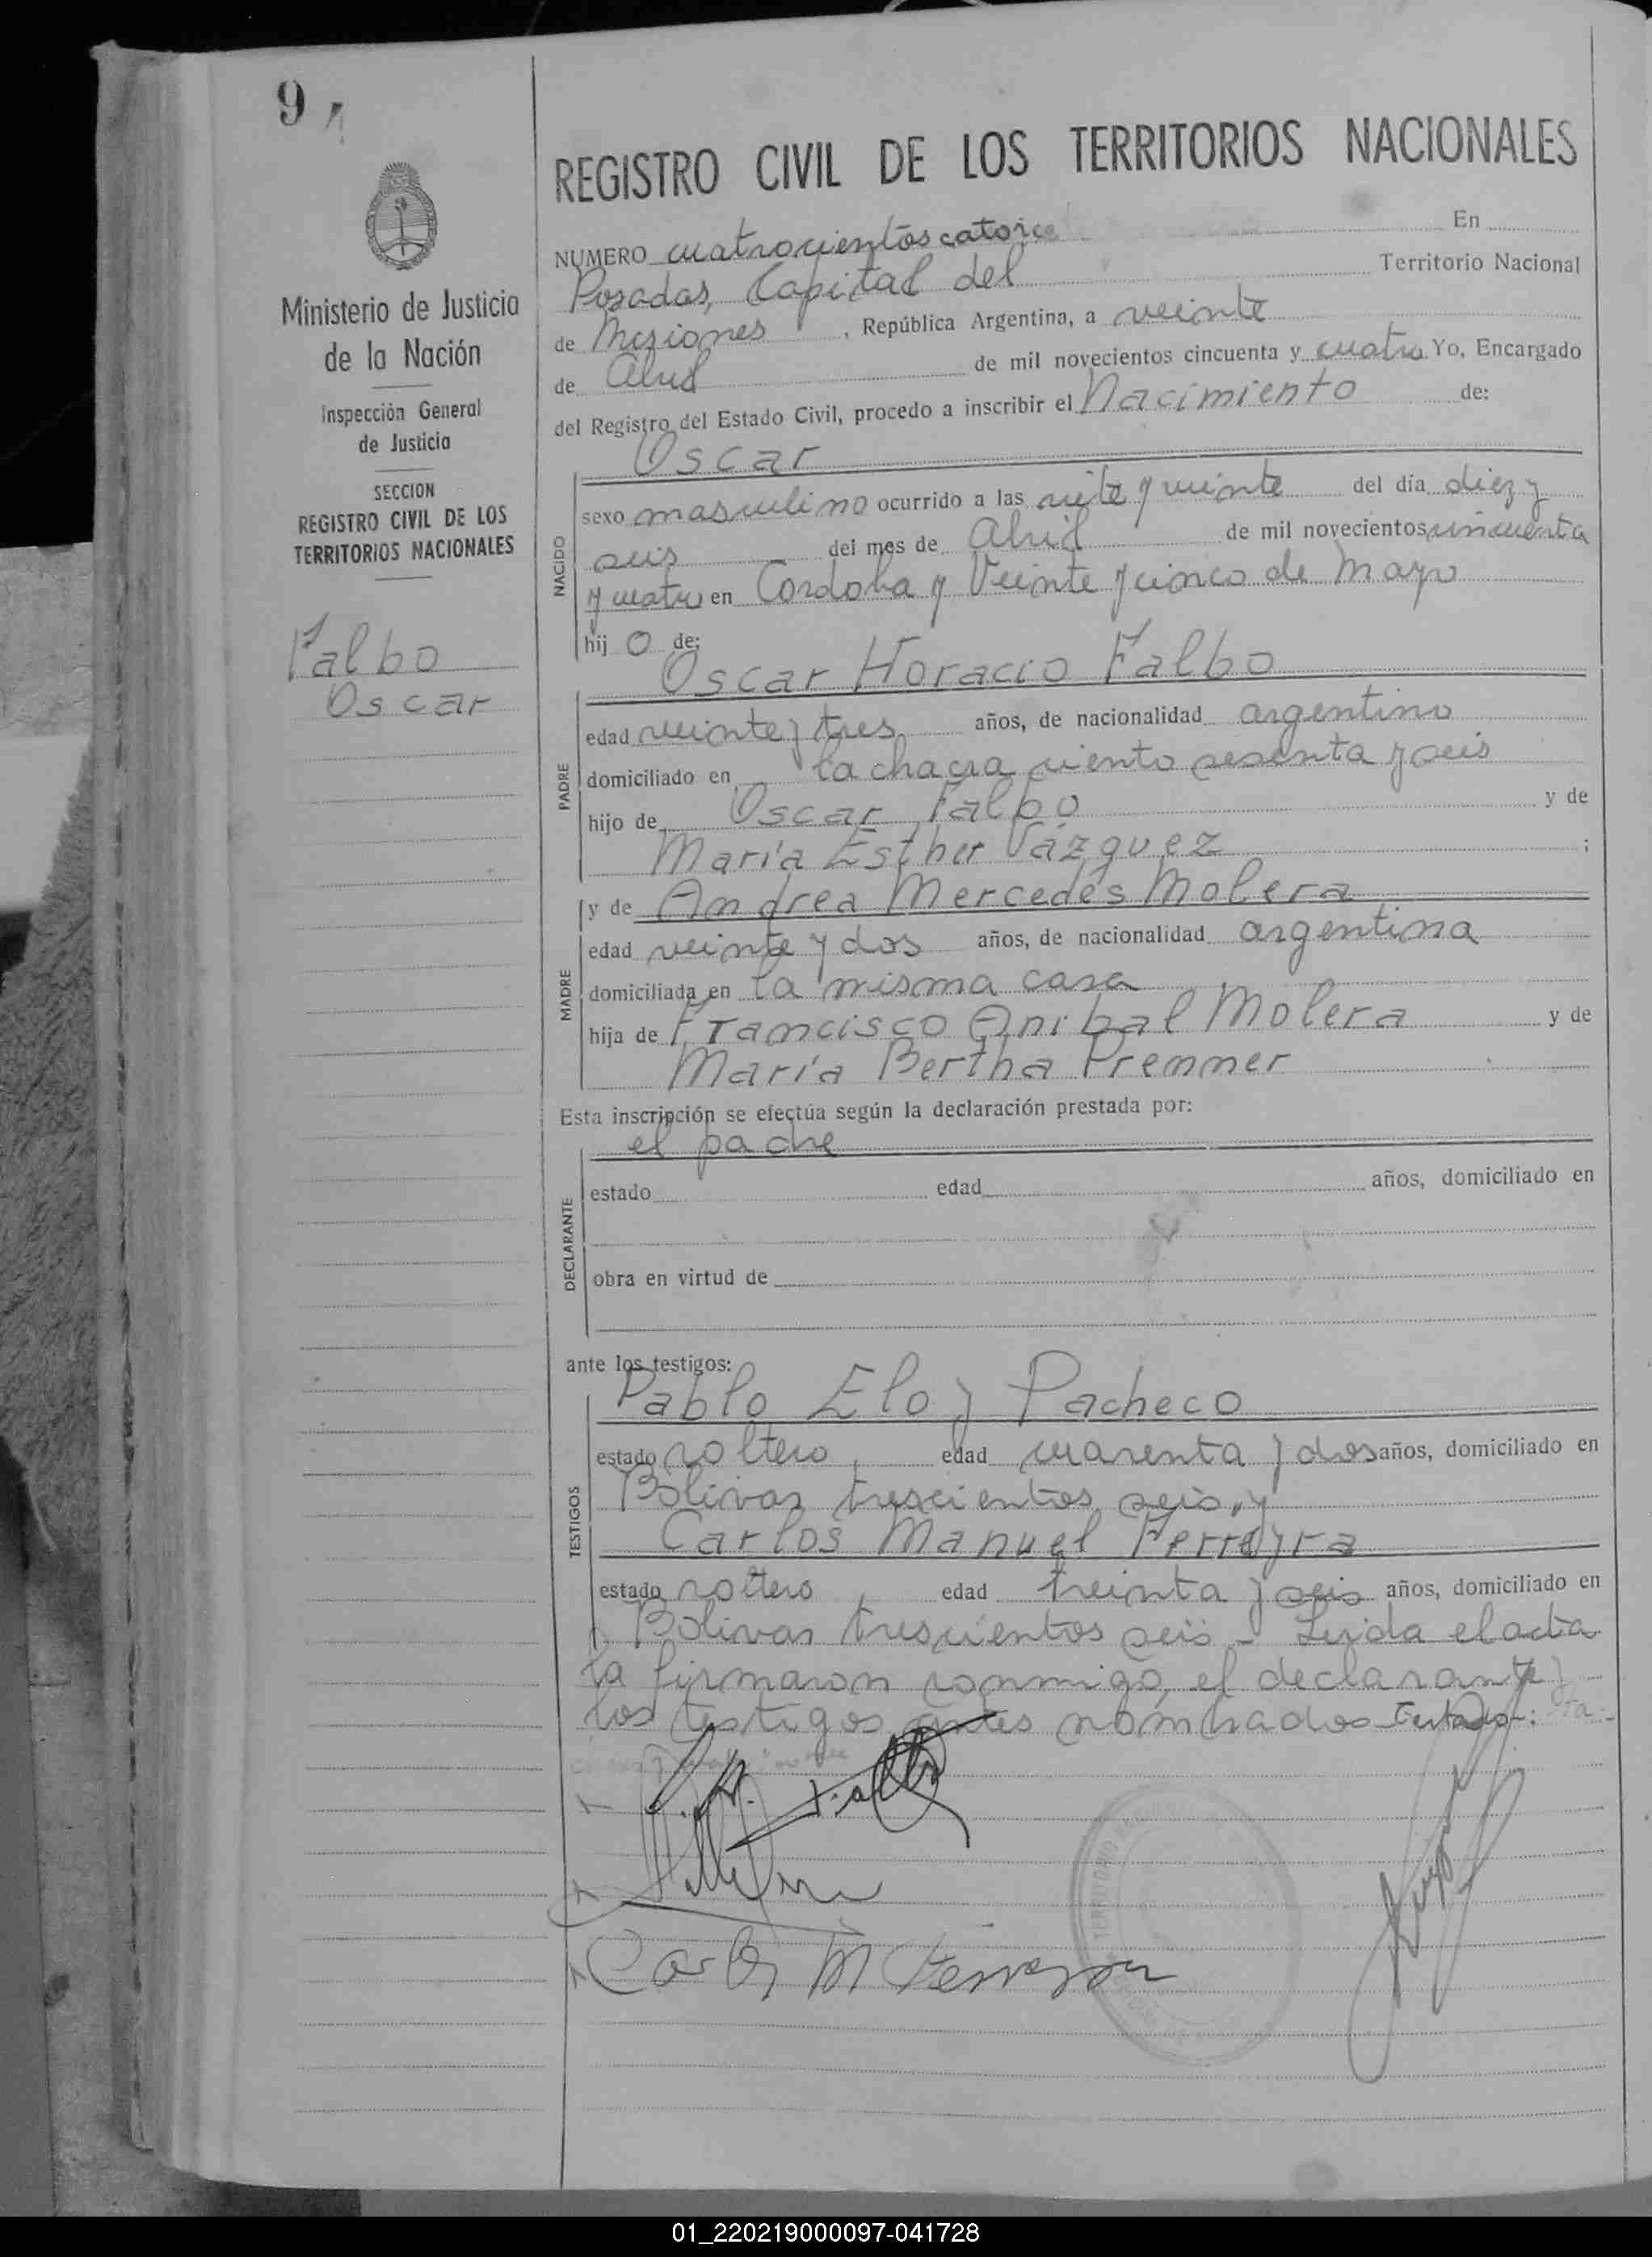 9
Ministerio de Justicia
de la Nación
Inspección General
de Justicia
SECCION
REGISTRO CIVIL DE LOS
TERRITORIOS NACIONALES
Falbo
Oscar
REGISTRO CIVIL DE LOS TERRITORIOS NACIONALES
NUMERO cuatrocientos catorce En
Posadas, Capital del Territorio Nacional
de Misiones, República Argentina, a veinte
de Abril de mil novecientos cincuenta y cuatro Yo, Encargado
del Registro del Estado Civil, procedo a inscribir el Nacimiento de:
Oscar
NACIDO
sexo masculino ocurrido a las siete y veinte del día diez y
seis del mes de Abril de mil novecientos cincuenta
y cuatro en Cordoba y Veinte y cinco de Mayo
hijo de:
Oscar Horacio Falbo
PADRE
edad veinte y tres años, de nacionalidad argentino
domiciliado en la chacra ciento sesenta y seis
hijo de Oscar Falbo y de
María Esther Vázquez ;
y de Andrea Mercedes Molera
MADRE
edad veinte y dos años, de nacionalidad argentina
domiciliada en la misma casa
hija de Francisco Anibal Molera y de
María Bertha Premmer
Esta inscripción se efectúa según la declaración prestada por:
el padre
DECLARANTE
estado edad años, domiciliado en
obra en virtud de
ante los testigos:
Pablo Eloy Pacheco
TESTIGOS
estado soltero, edad cuarenta y dos años, domiciliado en
Bolivar trescientos seis, y
Carlos Manuel Ferreyra
estado soltero, edad treinta y seis años, domiciliado en
Bolivar trescientos seis - Leida el acta
la firmaron conmigo, el declarante y
los testigos antes nombrados - Testado:
Carlos M Ferreyra
TERRITORIO
01_220219000097-041728